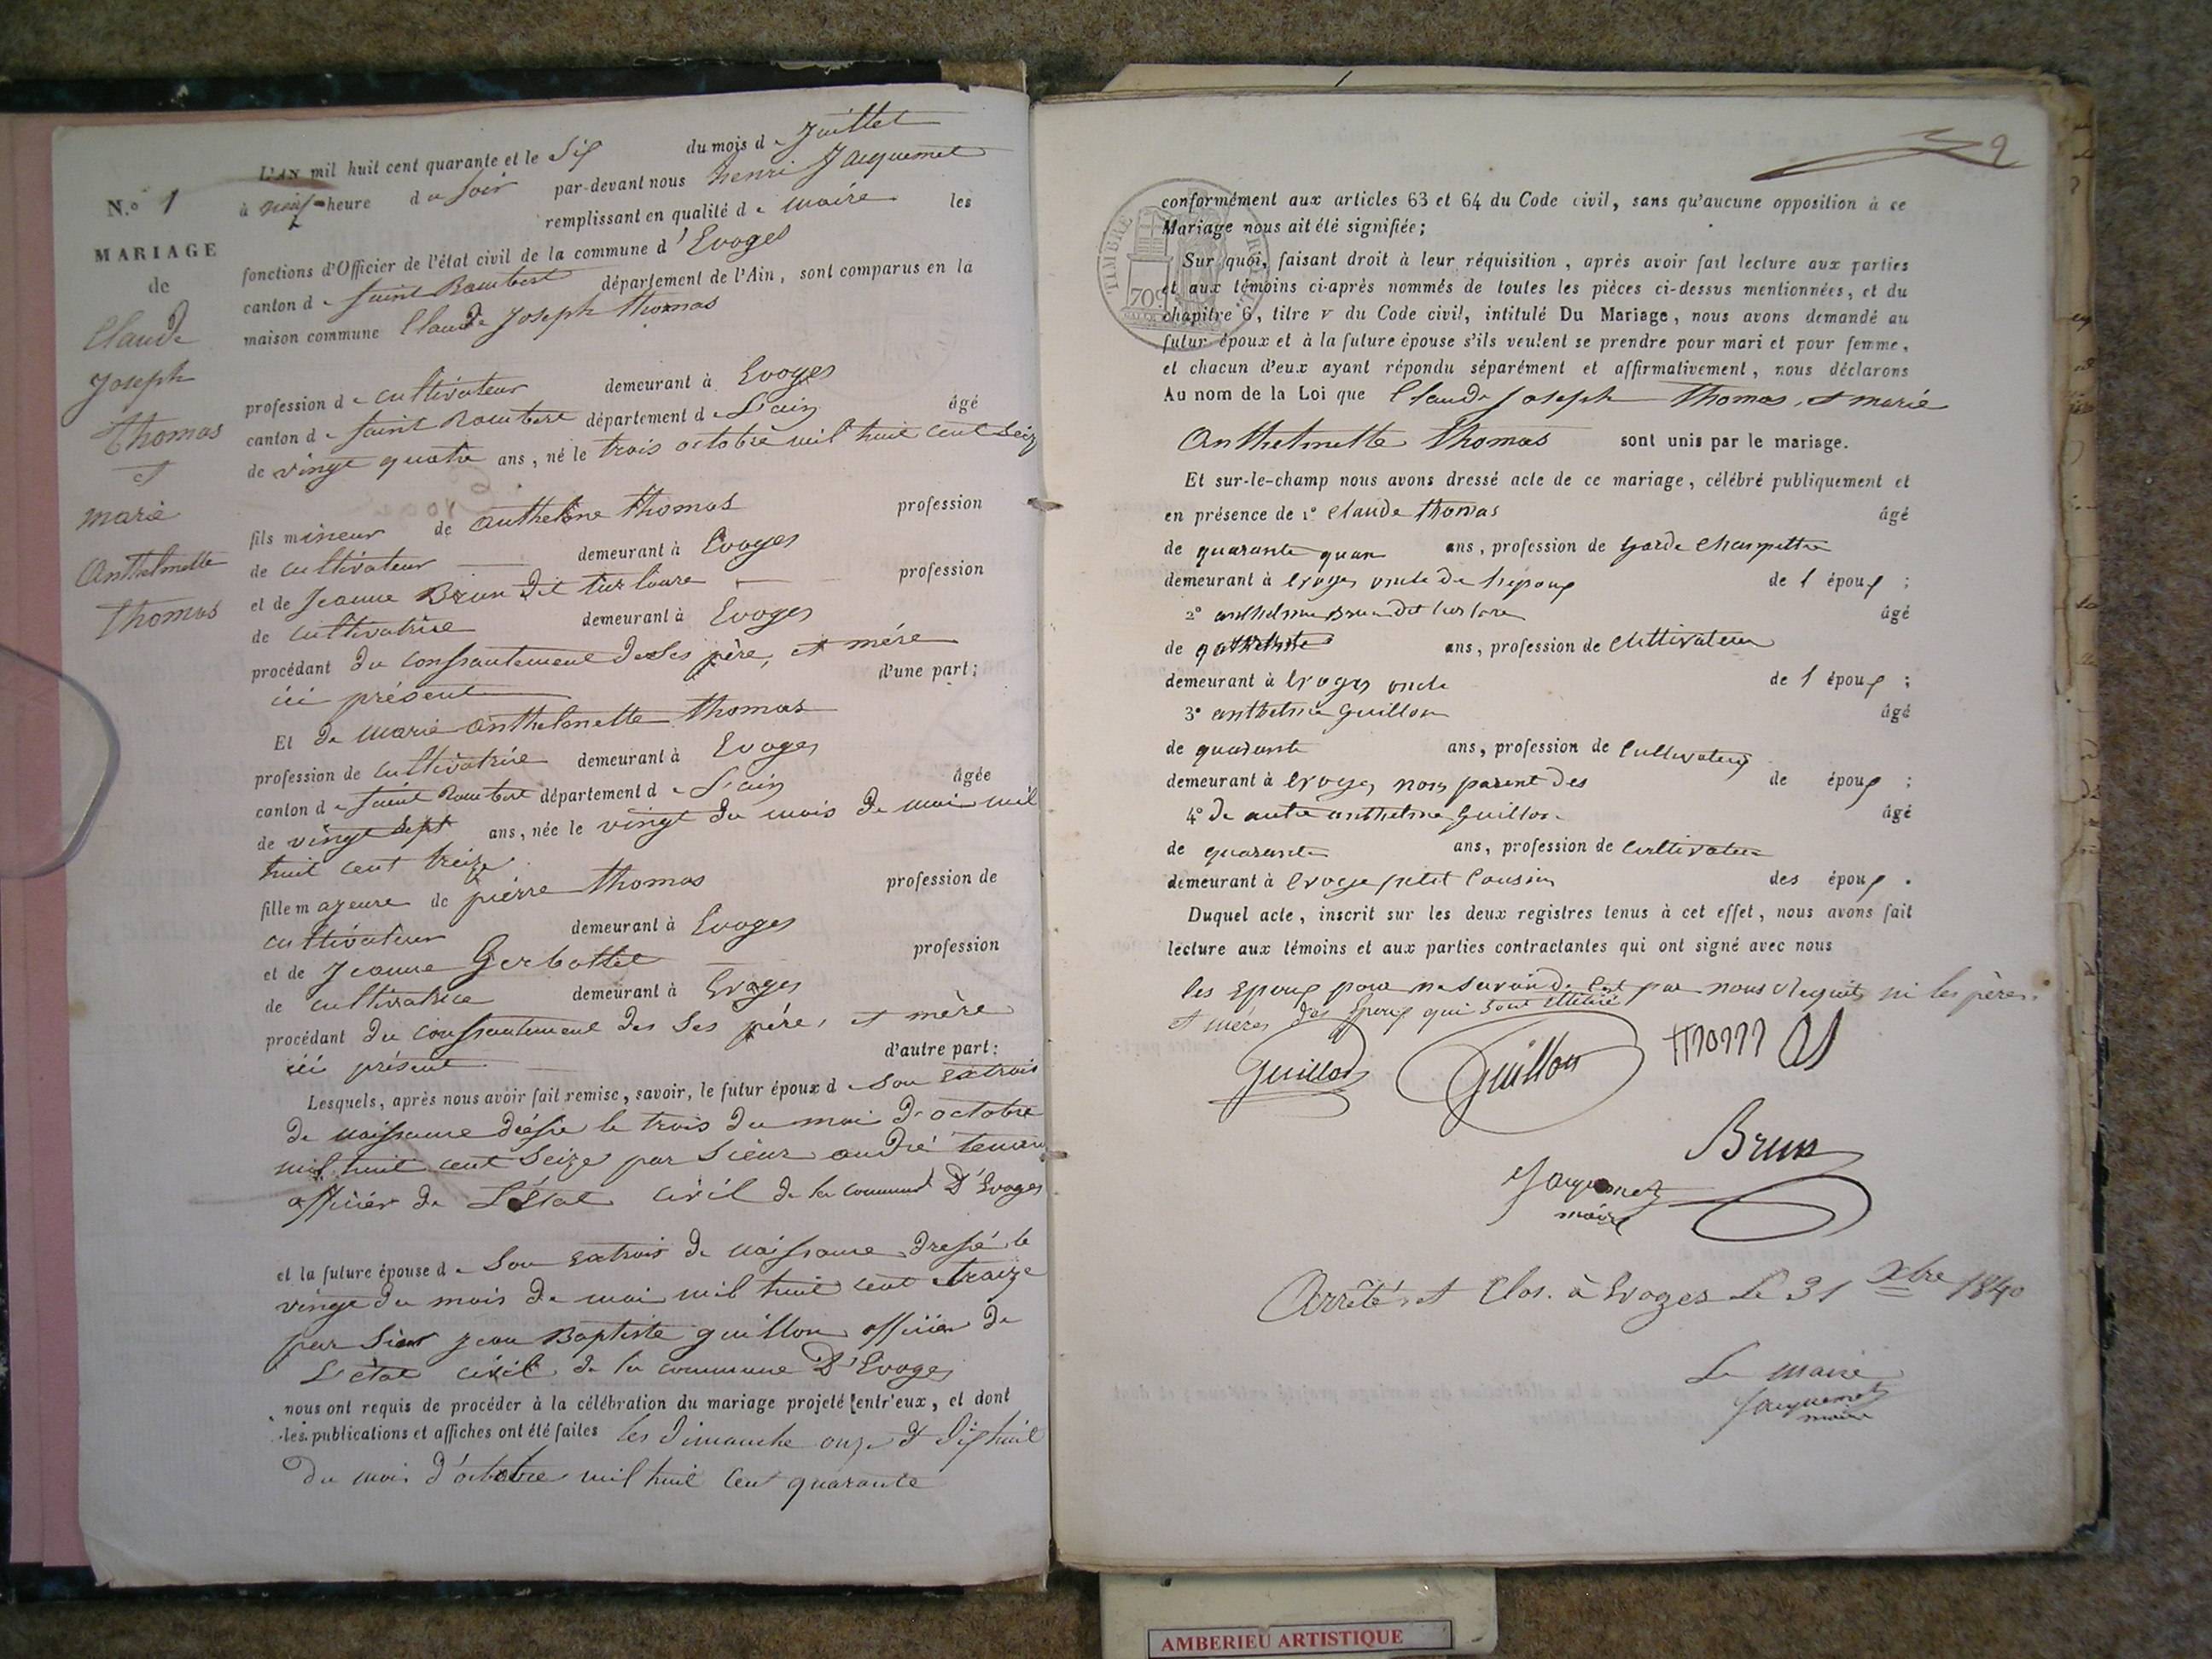 N.o 1
MARIAGE
de
Claude
Joseph
Thomas
et
marie
Anthelmette
Thomas
L'AN mil huit cent quarante et le Six du mois de Juillet
à neuf heure du Soir par-devant nous henri Jacquemet
remplissant en qualité de maire les
fonctions d'Officier de l'état civil de la commune d'Evoges
canton de Saint Rambert département de l'Ain, sont comparus en la
maison commune Claude Joseph thomas
profession de cultivateur demeurant à Evoges
canton de Saint Rambert département de L'ain âgé
de vingt quatre ans, né le trois octobre mil huit cent Seize
fils mineur de anthelme thomas profession
de cultivateur demeurant à Evoges
et de Jeanne Brun dit turloure profession
de cultivatrice demeurant à Evoges
procédant du consantement de Ses père, et mére
ici présent d'une part;
Et de marie anthelmette thomas
profession de cultivatrice demeurant à Evoges
canton de Saint Rambert département de L'ain âgée
de vingt Sept ans, née le vingt du mois de mai mil
huit cent treize
fille majeure de pierre thomas profession de
cultivateur demeurant à Evoges
et de Jeanne Gerbottet profession
de cultivatrice demeurant à Evoges
procédant du consantement des Ses pére, et mère
ici présent d'autre part:
Lesquels, après nous avoir fait remise, savoir, le futur époux de Son extrais
de naissance le trois du moi de octobre
mil huit cent Seize par Sieur andré
officier de L'Etat civil de la commune D'Evoges
et la future épouse de Son extrais de naissance dressé le
vingt du mois de mai mil huit cent traize
par Sieur jean Baptiste guillon officier de
L'état civil de la commune D'Evoges
nous ont requis de procéder à la célébration du mariage projeté entr'eux, et dont
les publications et affiches ont été faites les Dimanche onze et Dixhuit
du mois d'octobre mil huit Cent quarante
2
TIMBRE
70c
conformément aux articles 63 et 64 du Code civil, sans qu'aucune opposition à ce
Mariage nous ait été signifiée;
Sur quoi, faisant droit à leur réquisition, après avoir fait lecture aux parties
et aux témoins ci-après nommés de toutes les pièces ci-dessus mentionnées, et du
chapitre 6, titre v du Code civil, intitulé Du Mariage, nous avons demandé au
futur époux et à la future épouse s'ils veulent se prendre pour mari et pour femme,
et chacun d'eux ayant répondu séparément et affirmativement, nous déclarons
Au nom de la Loi que Claude Joseph Thomas, et marie
Anthelmette Thomas sont unis par le mariage.
Et sur-le-champ nous avons dressé acte de ce mariage, célébré publiquement et
en présence de 1o Claude thomas âgé
de quarante ans, profession de garde Champettre
demeurant à Evoges oncle de l'epoux de l époux ;
2o anthelme Brun dit turloure âgé
de ans, profession de Cultivateur
demeurant à Evoges oncle de l époux ;
3o anthelme Guillon âgé
de quarante ans, profession de Cultivateur
demeurant à Evoges non parent des de époux ;
4o de autre anthelme Guillon âgé
de quarante ans, profession de Cultivateur
demeurant à Evoges petit Cousin des époux .
Duquel acte, inscrit sur les deux registres tenus à cet effet, nous avons fait
lecture aux témoins et aux parties contractantes qui ont signé avec nous
les Epoux pour ne Savoir de par nous requits, ni les pères
et mères des Epoux qui Sont illitiré
Guillon Guillon
Brun
Jacquemet
maire
Arrêté et Clos. à Evoges Le 31 Xbre 1840
Le maire
Jacquemet
maire
AMBERIEU ARTISTIQUE